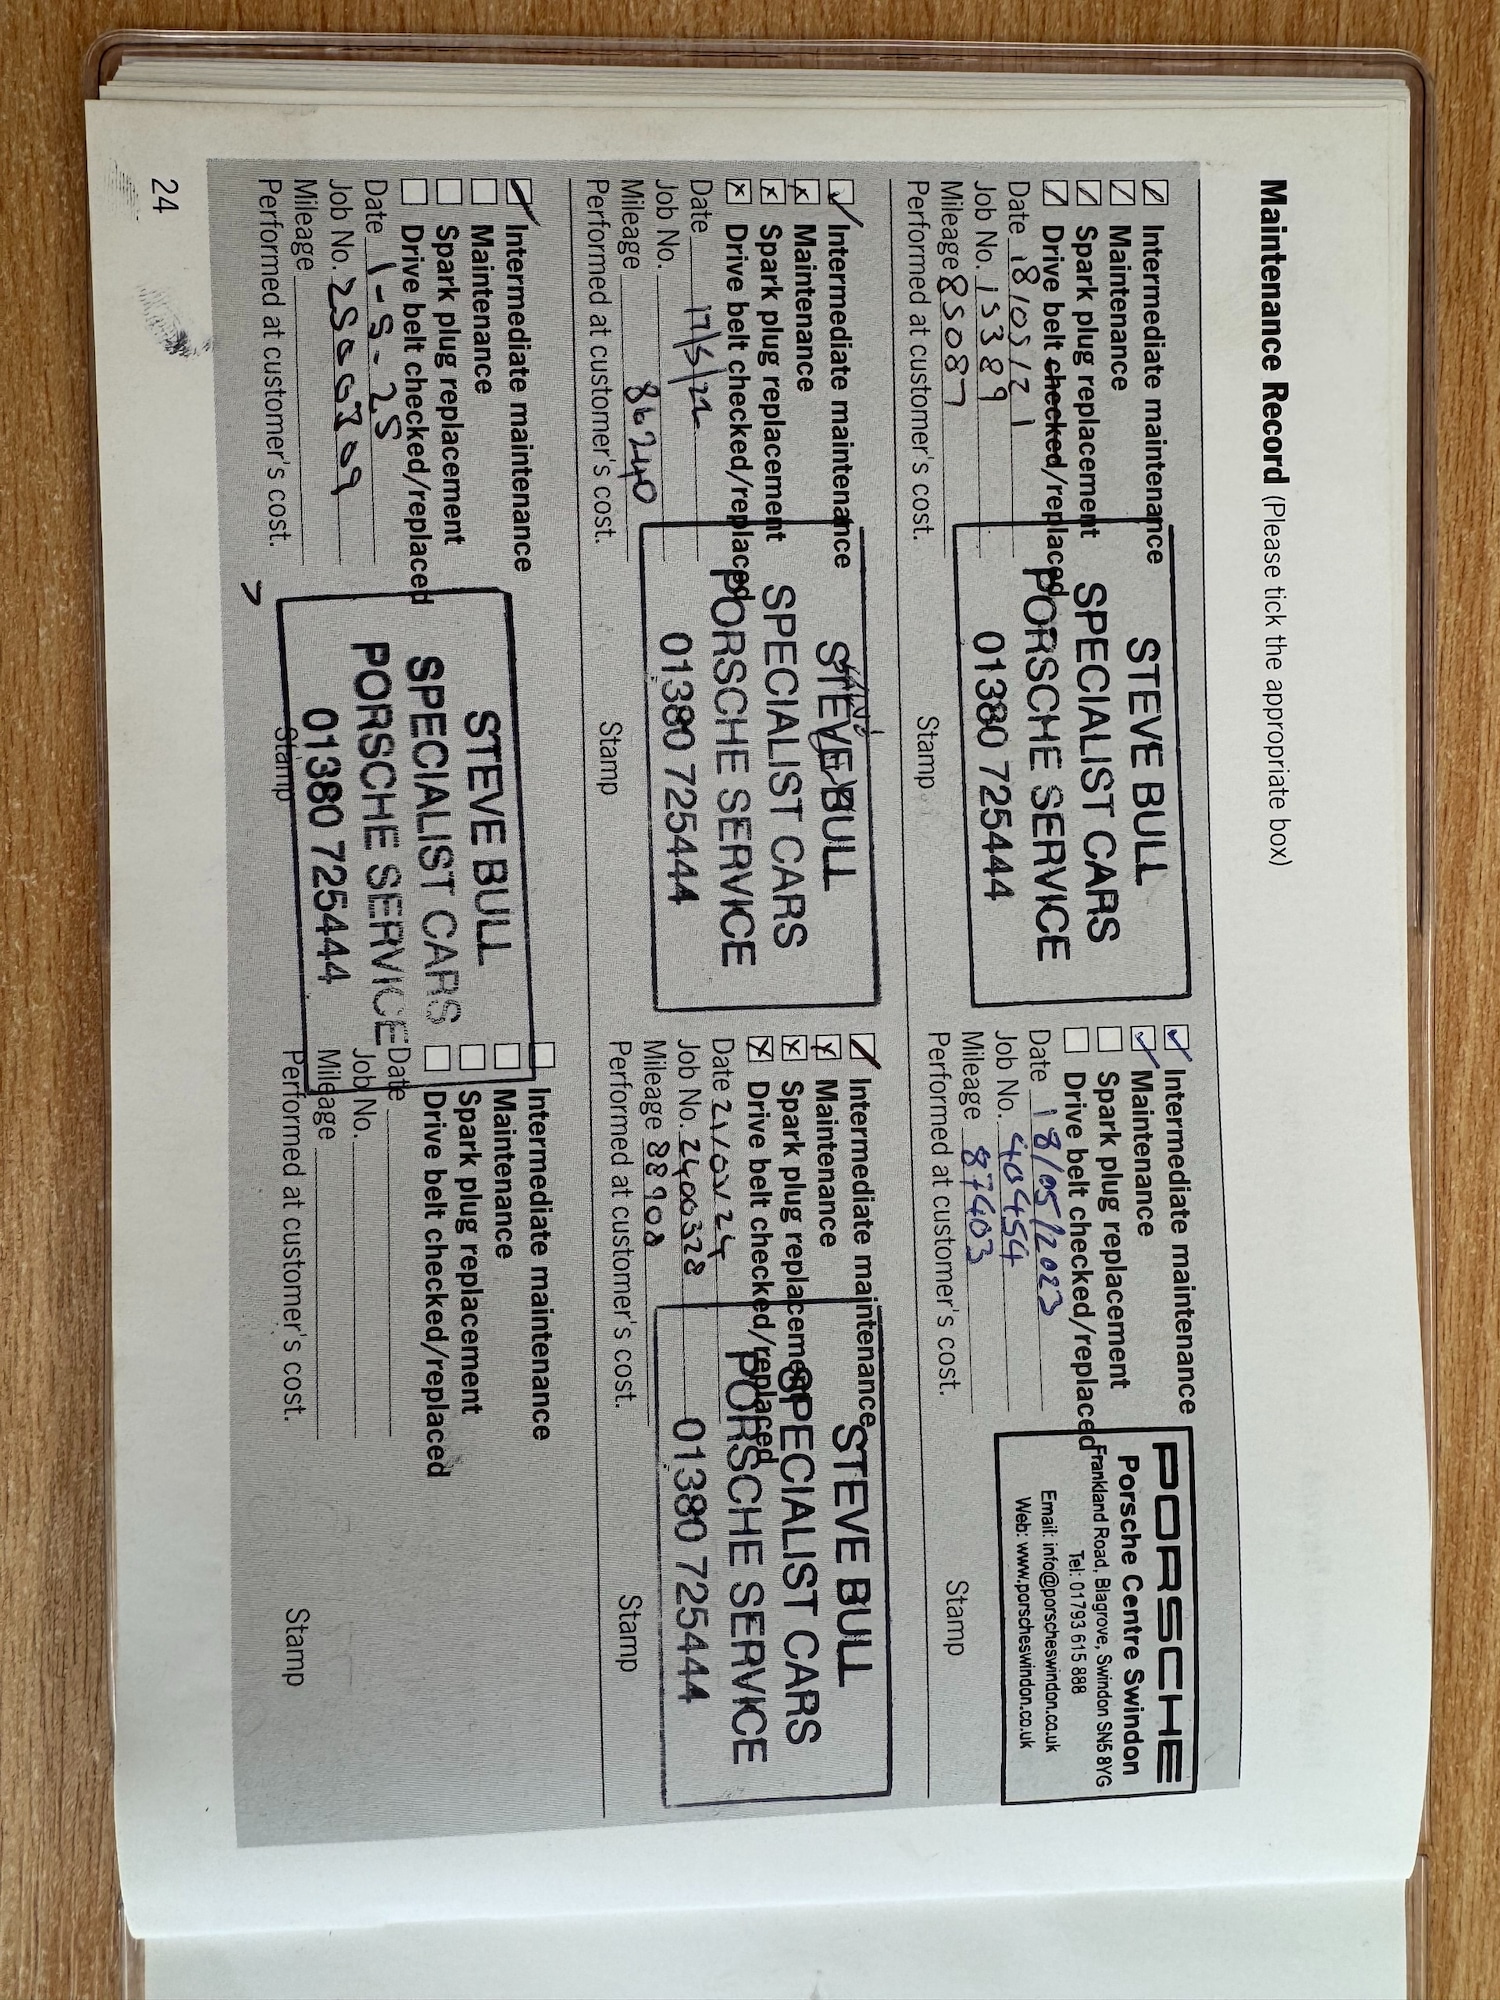 Maintenance Record (Please tick the appropriate box)
Intermediate maintenance
Maintenance
Spark plug replacement
Drive belt checked/replaced
Date 18/05/21
Job No. 15389
Mileage 85087
Performed at customer's cost.
STEVE BULL
SPECIALIST CARS
PORSCHE SERVICE
01380 725444
Stamp
Intermediate maintenance
Maintenance
Spark plug replacement
Drive belt checked/replaced
Date 18/05/2023
Job No. 404454
Mileage 87403
Performed at customer's cost.
PORSCHE
Porsche Centre Swindon
Frankland Road, Blagrove, Swindon SN5 8YG
Tel: 01793 615 888
Email: info@porscheswindon.co.uk
Web: www.porscheswindon.co.uk
Stamp
Intermediate maintenance
Maintenance
Spark plug replacement
Drive belt checked/replaced
Date 17/5/22
Job No.
Mileage 86240
Performed at customer's cost.
STEVE BULL
SPECIALIST CARS
PORSCHE SERVICE
01380 725444
Stamp
Intermediate maintenance
Maintenance
Spark plug replacement
Drive belt checked/replaced
Date
Job No. 2400328
Mileage 88908
Performed at customer's cost.
STEVE BULL
SPECIALIST CARS
PORSCHE SERVICE
01380 725444
Stamp
Intermediate maintenance
Maintenance
Spark plug replacement
Drive belt checked/replaced
Date 1-5-25
Job No. 2500309
Mileage
Performed at customer's cost.
STEVE BULL
SPECIALIST CARS
PORSCHE SERVICE
01380 725444
Stamp
Intermediate maintenance
Maintenance
Spark plug replacement
Drive belt checked/replaced
Date
Job No.
Mileage
Performed at customer's cost.
Stamp
24